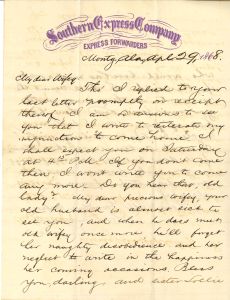 Southern Express Company
EXPRESS FORWARDERS
Montg Ala, Apl 29, 1868.
My dear Wifey
Tho' I replied to your
last letter promptly on receipt
thereof I am so anxious to see
you that I write to reiterate my
injunctions to come home. I
shall expect you on Saturday
at 4 P.M. If you don't come
then I won't write you to come
any more. Do you hear that, old
lady? My dear precious wifey, your
old husband is almost sick to
see you, and when he does meet
old wifey once more he'll forget
her naughty disobedience and her
neglect to write in the happiness
her coming occasions. Bless
you, darling, and sister